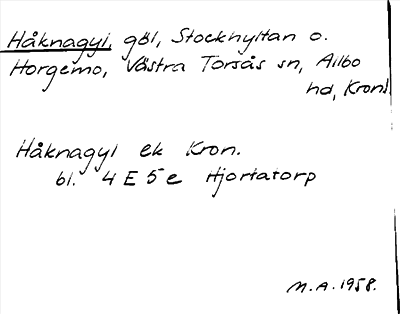 Håknagyl, göl, Stockhyltan o.
Horgemo, Västra Torsås sn, Allbo
hd, Kronl
Håknagyl ek Kron.
bl. 4 E 5 e Hjortatorp
M.A. 1958.